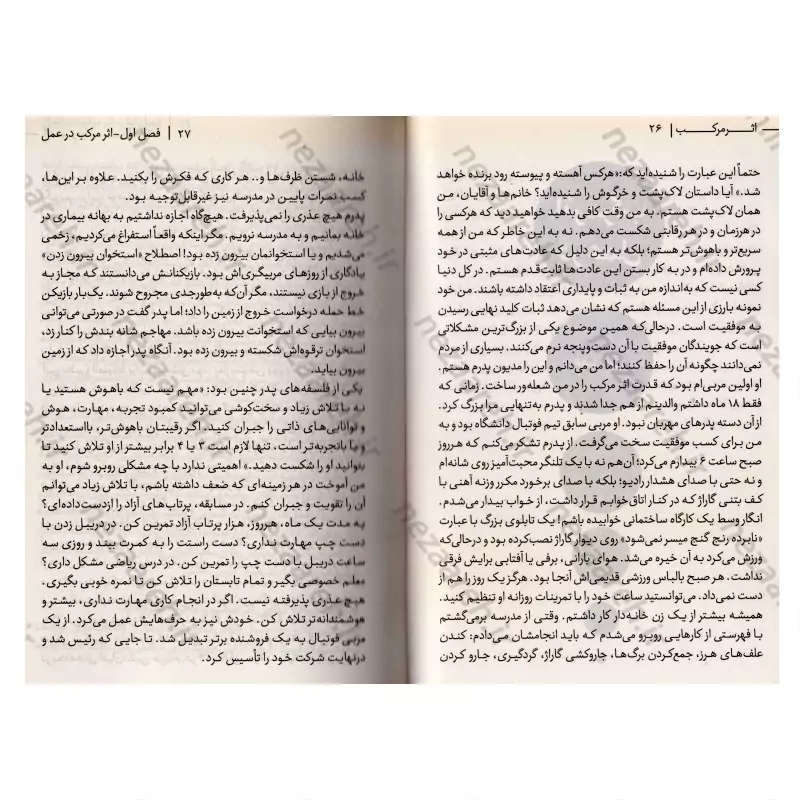 اثر مرکب | ۲۶
حتماً این عبارت را شنیده‌اید که: «هرکس آهسته و پیوسته رود برنده خواهد
شد.» آیا داستان لاک‌پشت و خرگوش را شنیده‌اید؟ خانم‌ها و آقایان، من
همان لاک‌پشت هستم. به من وقت کافی بدهید خواهید دید که هرکسی را
در هرزمان و در هر رقابتی شکست می‌دهم. نه به این خاطر که من از همه
سریع‌تر و باهوش‌تر هستم؛ بلکه به این دلیل که عادت‌های مثبتی در خود
پرورش داده‌ام و در به کار بستن این عادت‌ها ثابت‌قدم هستم. در کل دنیا
کسی نیست که به‌اندازه من به ثبات و پایداری اعتقاد داشته باشند. من خود
نمونه بارزی از این مسئله هستم که نشان می‌دهد ثبات کلید نهایی رسیدن
به موفقیت است. درحالی‌که همین موضوع یکی از بزرگ‌ترین مشکلاتی
است که جویندگان موفقیت با آن دست‌وپنجه نرم می‌کنند. بسیاری از مردم
نمی‌دانند چگونه آن را حفظ کنند؛ اما من می‌دانم و این را مدیون پدرم هستم.
او اولین مربی‌ام بود که قدرت اثر مرکب را در من شعله‌ور ساخت. زمانی که
فقط ۱۸ ماه داشتم والدینم از هم جدا شدند و پدرم به‌تنهایی مرا بزرگ کرد.
از آن دسته پدرهای مهربان نبود. او مربی سابق تیم فوتبال دانشگاه بود و به
من برای کسب موفقیت سخت می‌گرفت. از پدرم تشکر می‌کنم که هرروز
صبح ساعت ۶ بیدارم می‌کرد؛ آن‌هم نه با یک تلنگر محبت‌آمیز روی شانه‌ام
و نه حتی با صدای هشدار رادیو؛ بلکه با صدای برخورد مکرر وزنه آهنی با
کف بتنی گاراژ که در کنار اتاق‌خوابم قرار داشت، از خواب بیدار می‌شدم.
انگار وسط یک کارگاه ساختمانی خوابیده باشم! یک تابلوی بزرگ با عبارت
«نابرده رنج گنج میسر نمی‌شود» روی دیوار گاراژ نصب‌کرده بود و درحالی‌که
ورزش می‌کرد به آن خیره می‌شد. هوای بارانی، برفی یا آفتابی برایش فرقی
نداشت. هر صبح بالباس ورزشی قدیمی‌اش آنجا بود. هرگز یک روز را هم از
دست نمی‌داد. می‌توانستید ساعت خود را با تمرینات روزانه او تنظیم کنید.
همیشه بیشتر از یک زن خانه‌دار کار داشتم. وقتی از مدرسه برمی‌گشتم
با فهرستی از کارهایی روبرو می‌شدم که باید انجامشان می‌دادم: کندن
علف‌های هرز، جمع‌کردن برگ‌ها، جاروکشی گاراژ، گردگیری، جارو کردن
۲۷ | فصل اول-اثر مرکب در عمل
خانه، شستن ظرف‌ها و.. هر کاری که فکرش را بکنید. علاوه بر این‌ها،
کسب نمرات پایین در مدرسه نیز غیرقابل‌توجیه بود.
پدرم هیچ عذری را نمی‌پذیرفت. هیچ‌گاه اجازه نداشتیم به بهانه بیماری در
خانه بمانیم و به مدرسه نرویم. مگر اینکه واقعاً استفراغ می‌کردیم، زخمی
می‌شدیم و یا استخوانمان بیرون زده بود! اصطلاح «استخوان بیرون زدن»
یادگاری از روزهای مربیگری‌اش بود. بازیکنانش می‌دانستند که مجاز به
خروج از بازی نیستند، مگر آن‌که به‌طورجدی مجروح شوند. یک‌بار بازیکن
خط حمله درخواست خروج از زمین را داد؛ اما پدر گفت در صورتی می‌توانی
بیرون بیایی که استخوانت بیرون زده باشد. مهاجم شانه بندش را کنار زد،
استخوان ترقوه‌اش شکسته و بیرون زده بود. آنگاه پدر اجازه داد که از زمین
بیرون بیاید.
یکی از فلسفه‌های پدر چنین بود: «مهم نیست که باهوش هستید یا
نه با تلاش زیاد و سخت‌کوشی می‌توانید کمبود تجربه، مهارت، هوش
و توانایی‌های ذاتی را جبران کنید. اگر رقیبتان باهوش‌تر، بااستعدادتر
و یا باتجربه‌تر است، تنها لازم است ۳ یا ۴ برابر بیشتر از او تلاش کنید تا
بتوانید او را شکست دهید.» اهمیتی ندارد با چه مشکلی روبرو شوم، او به
من آموخت در هر زمینه‌ای که ضعف داشته باشم، با تلاش زیاد می‌توانم
آن را تقویت و جبران کنم. در مسابقه، پرتاب‌های آزاد را ازدست‌داده‌ای؟
به مدت یک ماه، هرروز، هزار پرتاب آزاد تمرین کن. در دریبل زدن با
دست چپ مهارت نداری؟ دست راستت را به کمرت ببند و روزی سه
ساعت دریبل با دست چپ را تمرین کن. در درس ریاضی مشکل داری؟
معلم خصوصی بگیر و تمام تابستان را تلاش کن تا نمره خوبی بگیری.
هیچ عذری پذیرفته نیست. اگر در انجام کاری مهارت نداری، بیشتر و
هوشمندانه‌تر تلاش کن. خودش نیز به حرف‌هایش عمل می‌کرد. از یک
مربی فوتبال به یک فروشنده برتر تبدیل شد. تا جایی که رئیس شد و
درنهایت شرکت خود را تأسیس کرد.